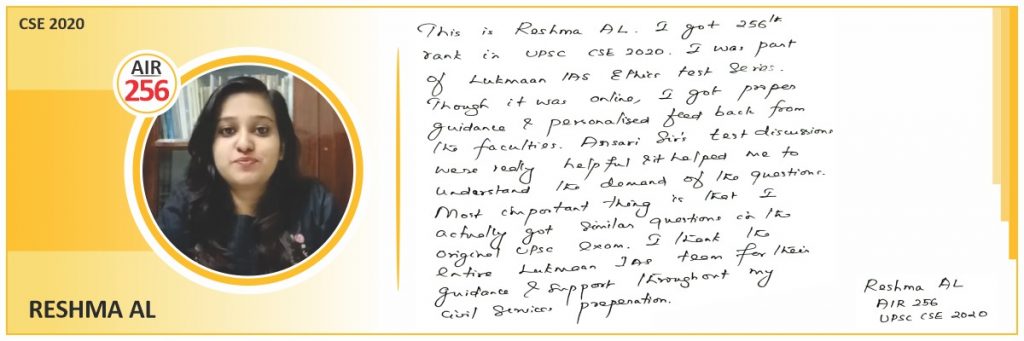 CSE 2020
AIR
256
RESHMA AL
This is Reshma AL. I got 256th
rank in UPSC CSE 2020. I was part
of Lukmaan IAS Ethics test Series.
Though it was online, I got proper
guidance & personalised feed back from
the faculties. Ansari Sir's test discussions
were really helpful & it helped me to
understand the demand of the questions.
Most important thing is that I
actually got similar questions in the
original UPSC exam. I thank the
entire Lukmaan IAS team for their
guidance & support throughout my
civil services preparation.
Reshma AL
AIR 256
UPSC CSE 2020